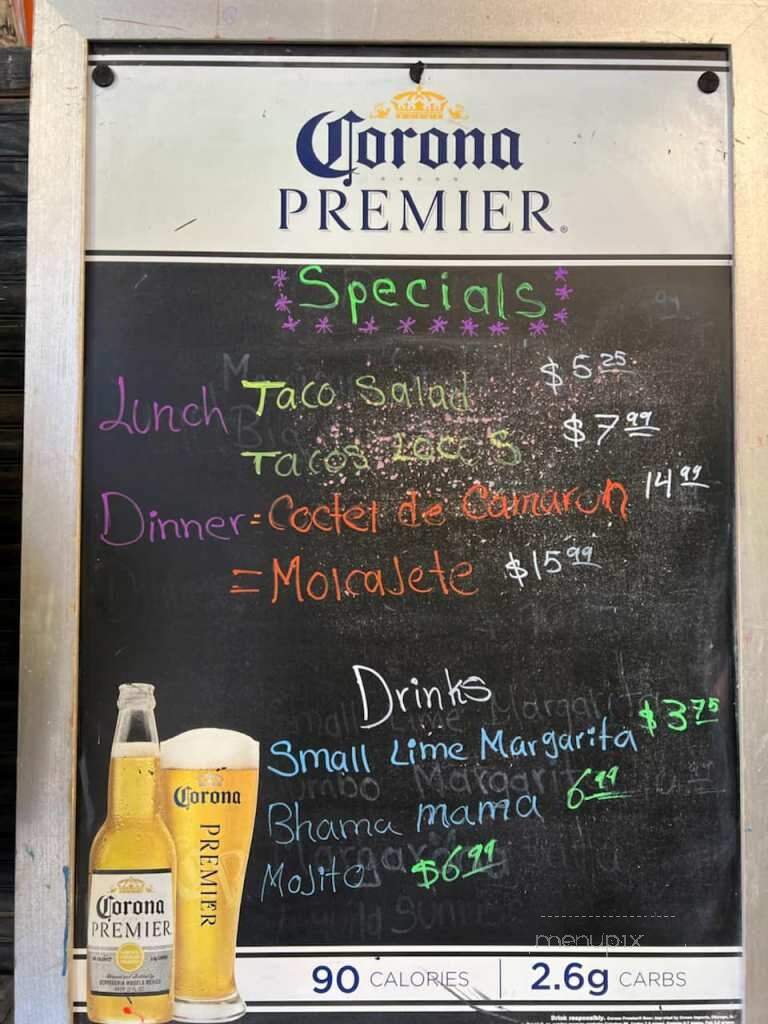 Corona
PREMIER®
Specials
Lunch Taco Salad $5 25
Tacos Locos $7 99
Dinner = Coctel de Camaron 14 99
= Molcajete $15 99
Drinks
Small Lime Margarita $3 75
Bhama mama 6 99
Mojito $6 99
Corona
PREMIER
Corona
PREMIER
menupix
90 CALORIES | 2.6g CARBS
Drink responsibly.